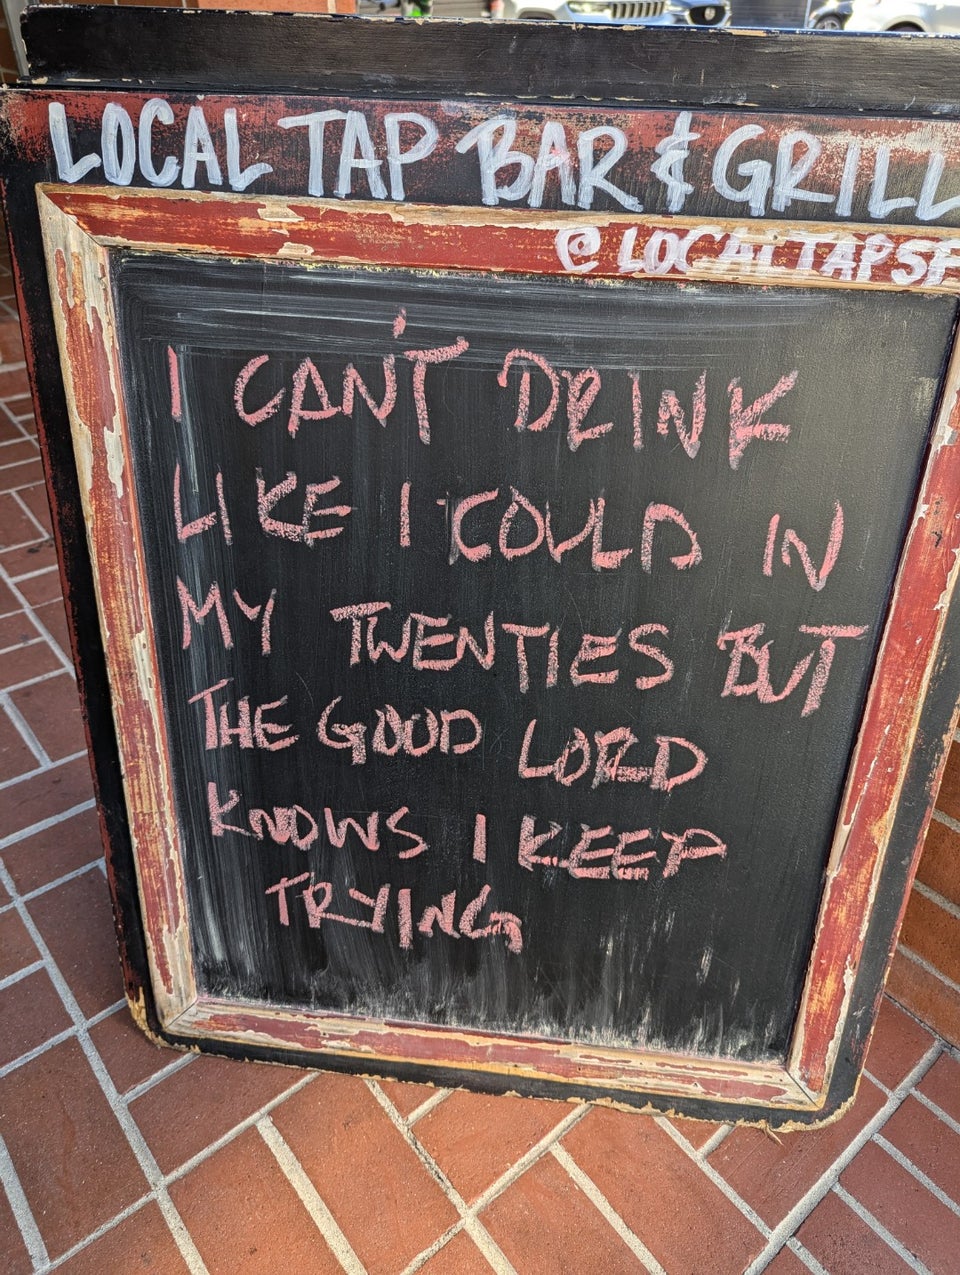 LOCAL TAP BAR & GRILL
@LOCALTAPSF
I CAN'T DRINK
LIKE I COULD IN
MY TWENTIES BUT
THE GOOD LORD
KNOWS I KEEP
TRYING